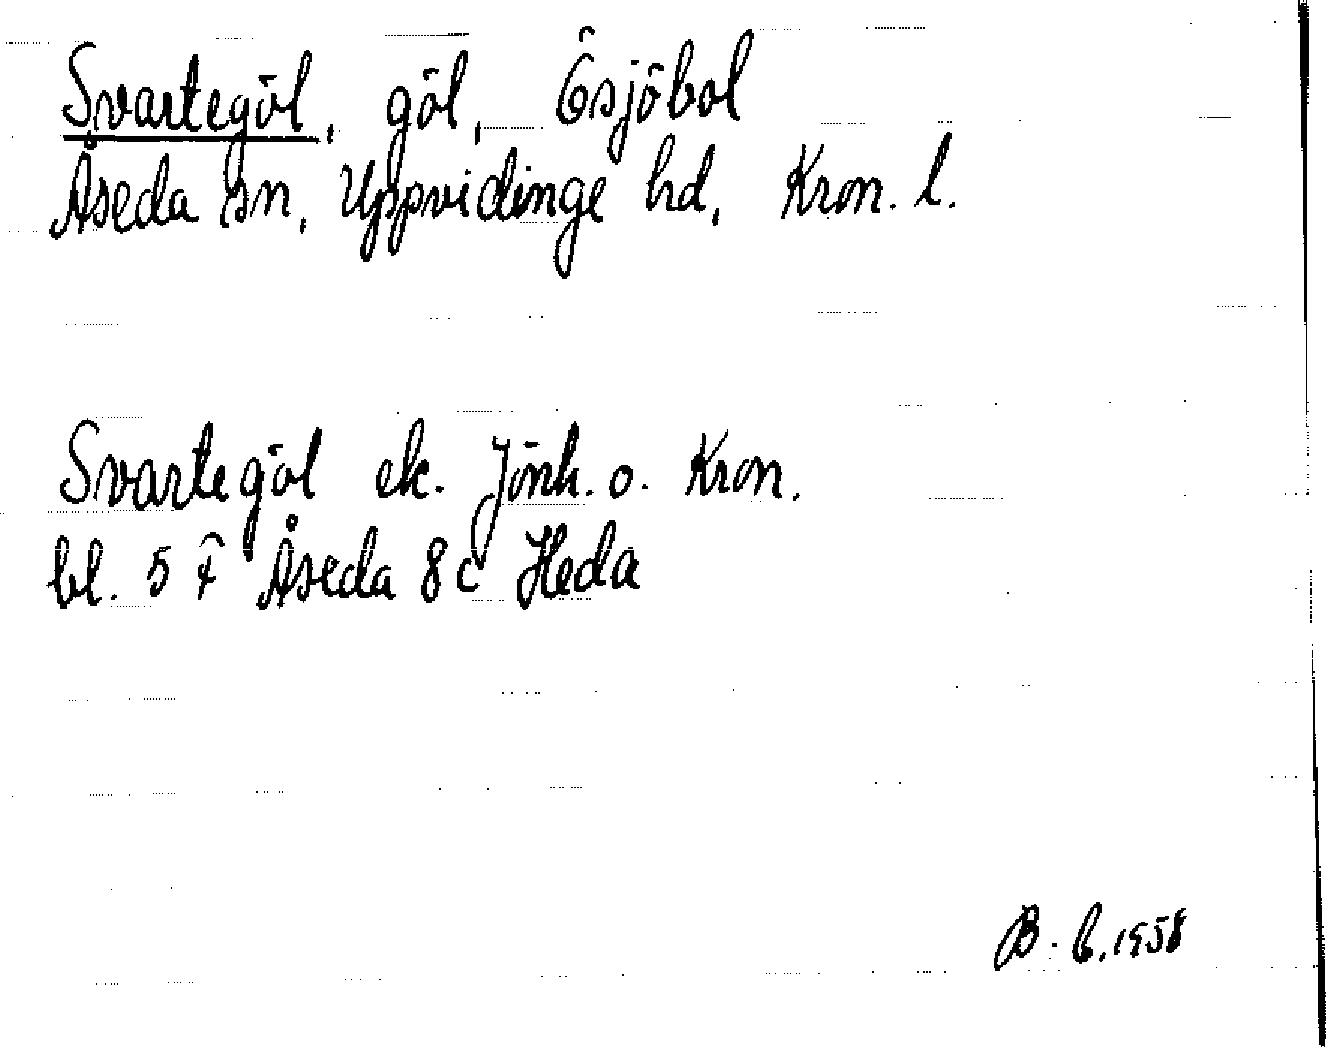 Svartegöl, göl, Ösjöbol
Åseda sn, Uppvidinge hd, Kron. l.
Svartegöl ek. Jönk. o. Kron.
bl. 5 f Åseda 8 c Heda
B. C. 1958